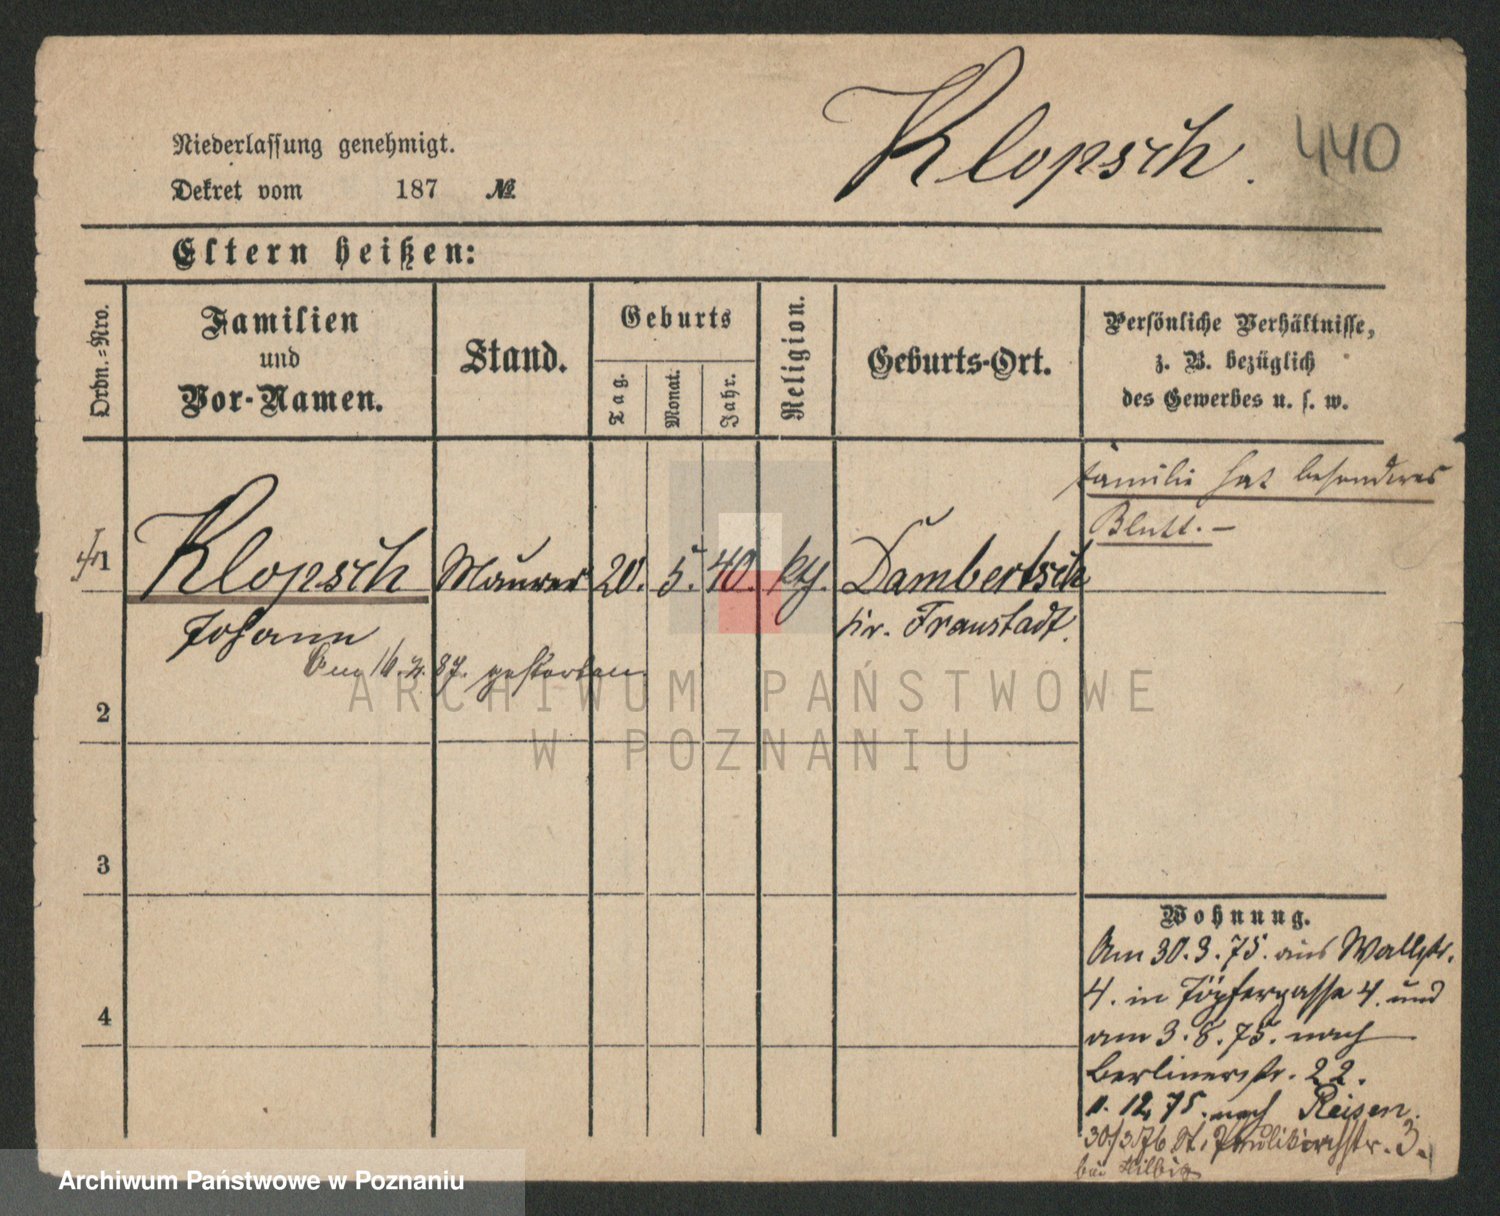 Klopsch.
440
Niederlassung genehmigt.
Dekret vom 187 №
Eltern heißen:
Ordn.=Nro.
Familien
und
Vor-Namen.
Stand.
Geburts
Tag.
Monat.
Jahr.
Religion.
Geburts-Ort.
Persönliche Verhältnisse,
z. B. bezüglich
des Gewerbes u. s. w.
Familie hat besonderes
Blatt. —
1 Klopsch Maurer 20. 5. 40. kth. Dambertsch
Johann Kr. Fraustadt.
Am 16. 4. 87. gestorben
2
3
4
Wohnung.
Am 30.3.75. aus Wallstr.
4. in Töpfergasse 4. und
am 3.8.75. nach
Berlinerstr. 22.
12. 75. nach Reisen.
30/3 76 St. Paulikirchstr. 3.
bei Hilbig
ARCHIWUM PAŃSTWOWE
W POZNANIU
Archiwum Państwowe w Poznaniu